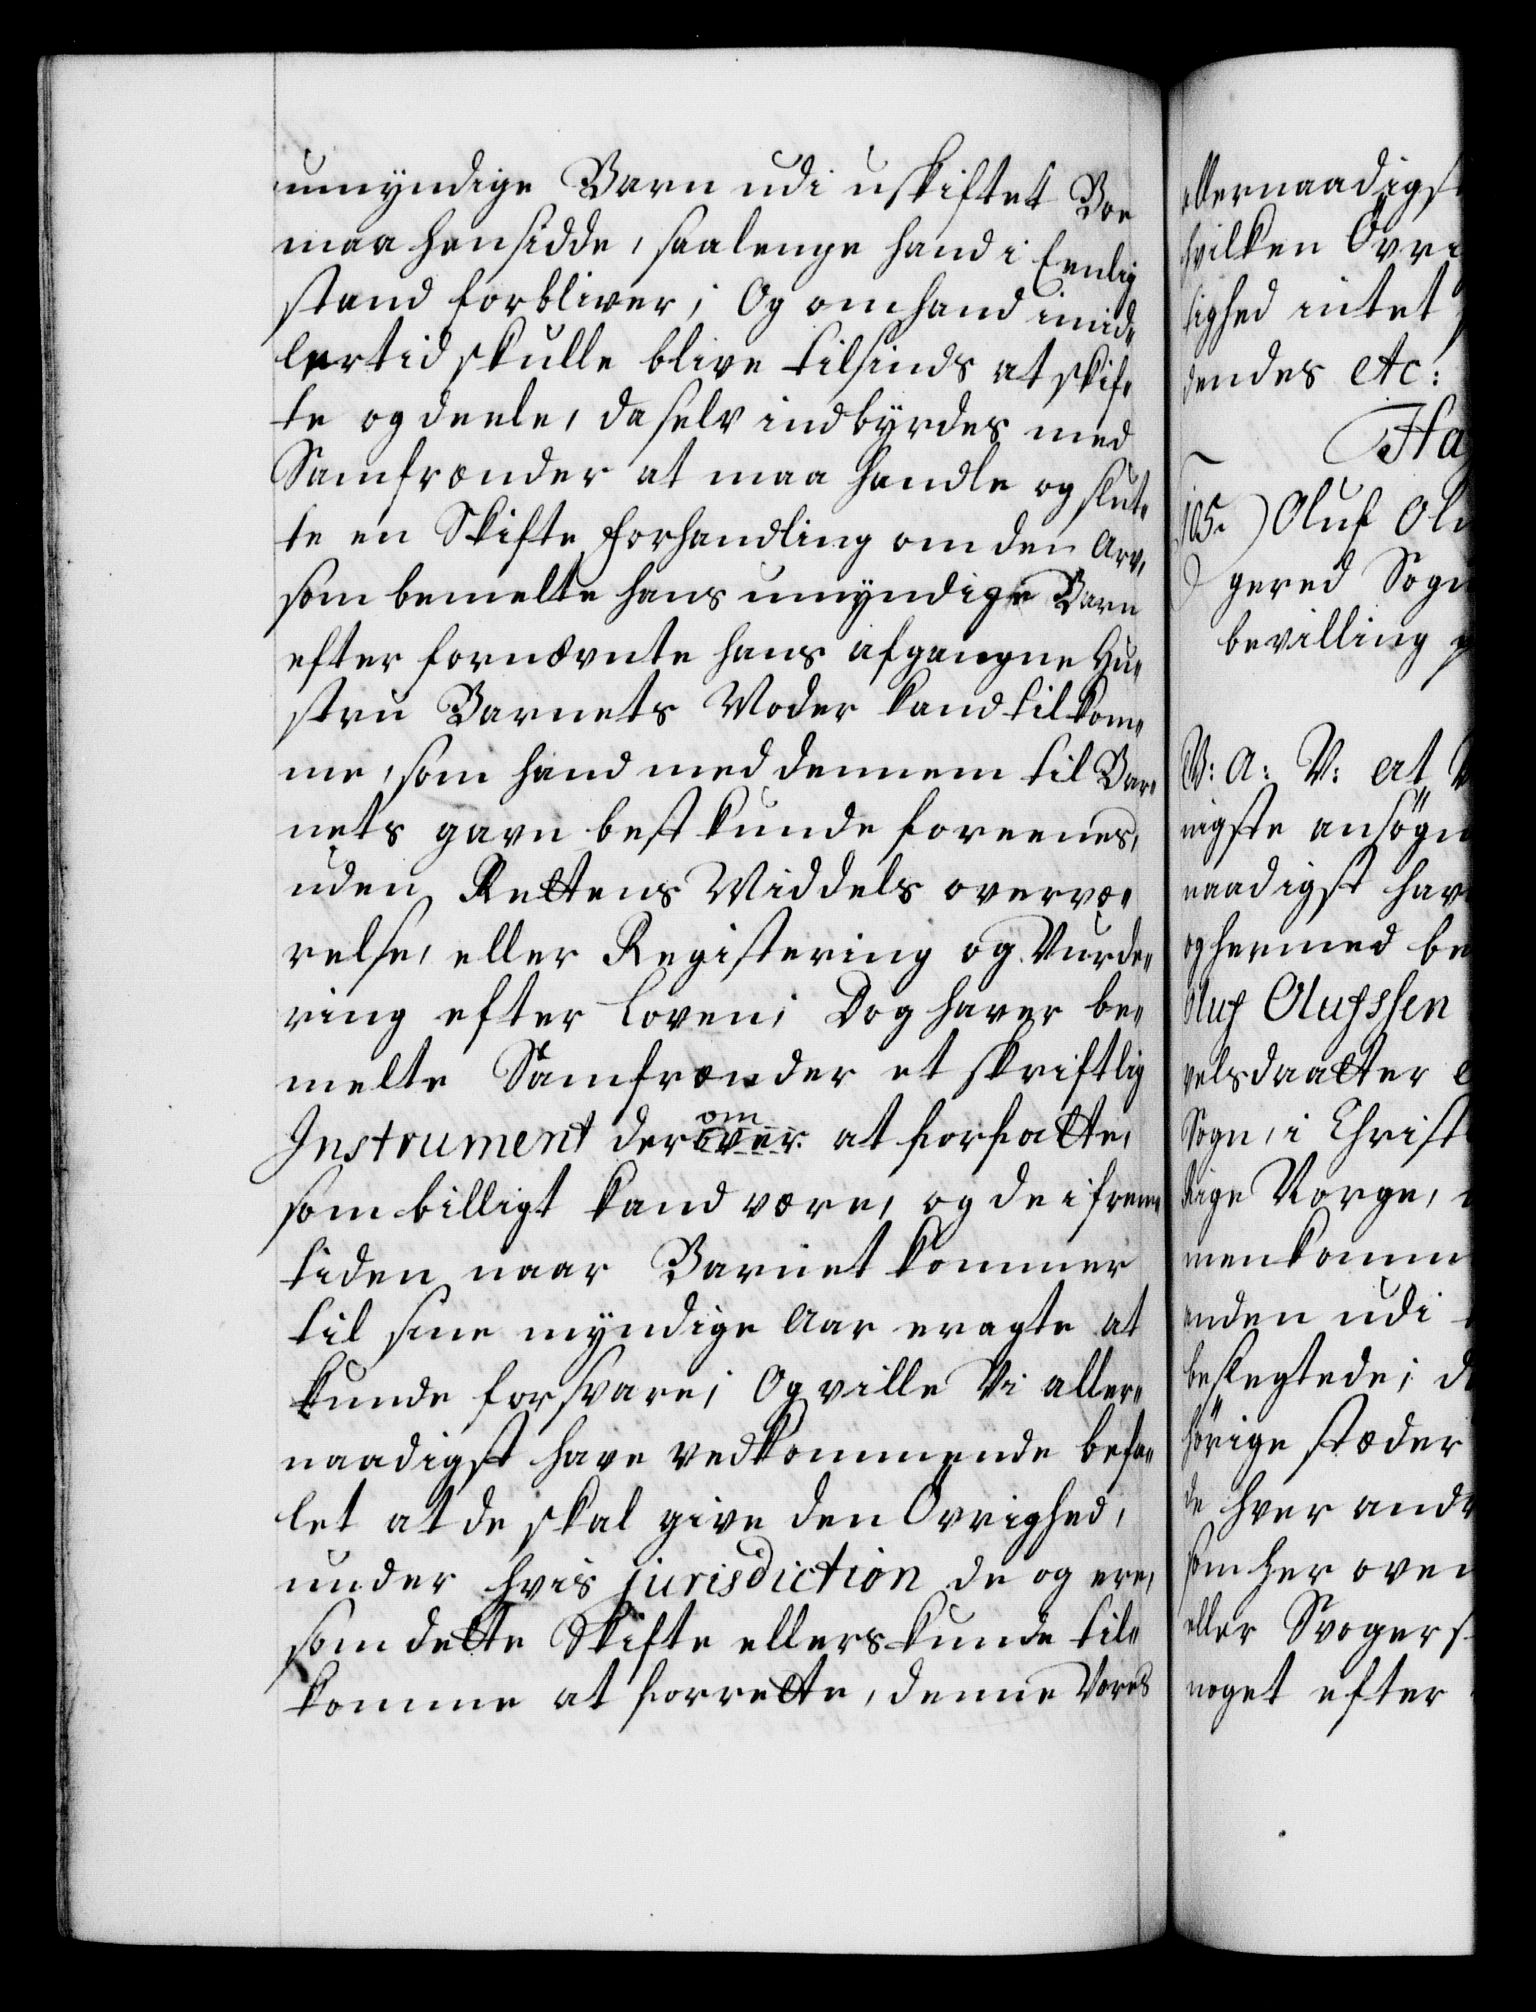 umyndige Barn udi uskiftet Boe
maa hensidde, saalenge hand i Eenlig
stand forbliver; Og om hand imid„
lertid skulle blive tilsinds at skif„
te og deele, da selv indbyrdes med
Samfrænder at maa handle og slut„
te en Skifte forhandling om den Arv,
som bemelte hans umyndige Barn
efter fornævnte hans afgangne Hu„
stru Barnets Moder kand tilkom„
me, som hand med dennem til Bar„
nets gavn best kunde foreenes,
uden Rettens Middels overvæ„
relse, eller Registering og Vurde„
ring efter Loven; Dog haver be„
melte Samfrænder et skriftlig
Instrument derover om at forfatte,
som billigt kand være, og de i frem„
tiden naar Barnet kommer
til sine myndige Aar eragte at
kunde forsvare; Og ville Vi aller„
naadigst have vedkommende befa„
let at de skal give den Övrighed,
under hvis jurisdiction de og ere,
som dette Skifte ellers kunde til„
komme at forrette, denne Vores
allernaadigst
hvilken Övri
tighed intet
dendes etc:
Ha
105. ) Oluf Olu
gered Sogn
bevilling
W: A: V: at V
nigste ansögn
naadigst hav
og hermed be
Oluf Olufssen
velsdaatter
Sogn, i Christ
Rige Norge,
menkomm
anden udi
beslegtede; d
hörige stæder
de hver andr
som her oven
eller Svogers
noget efter